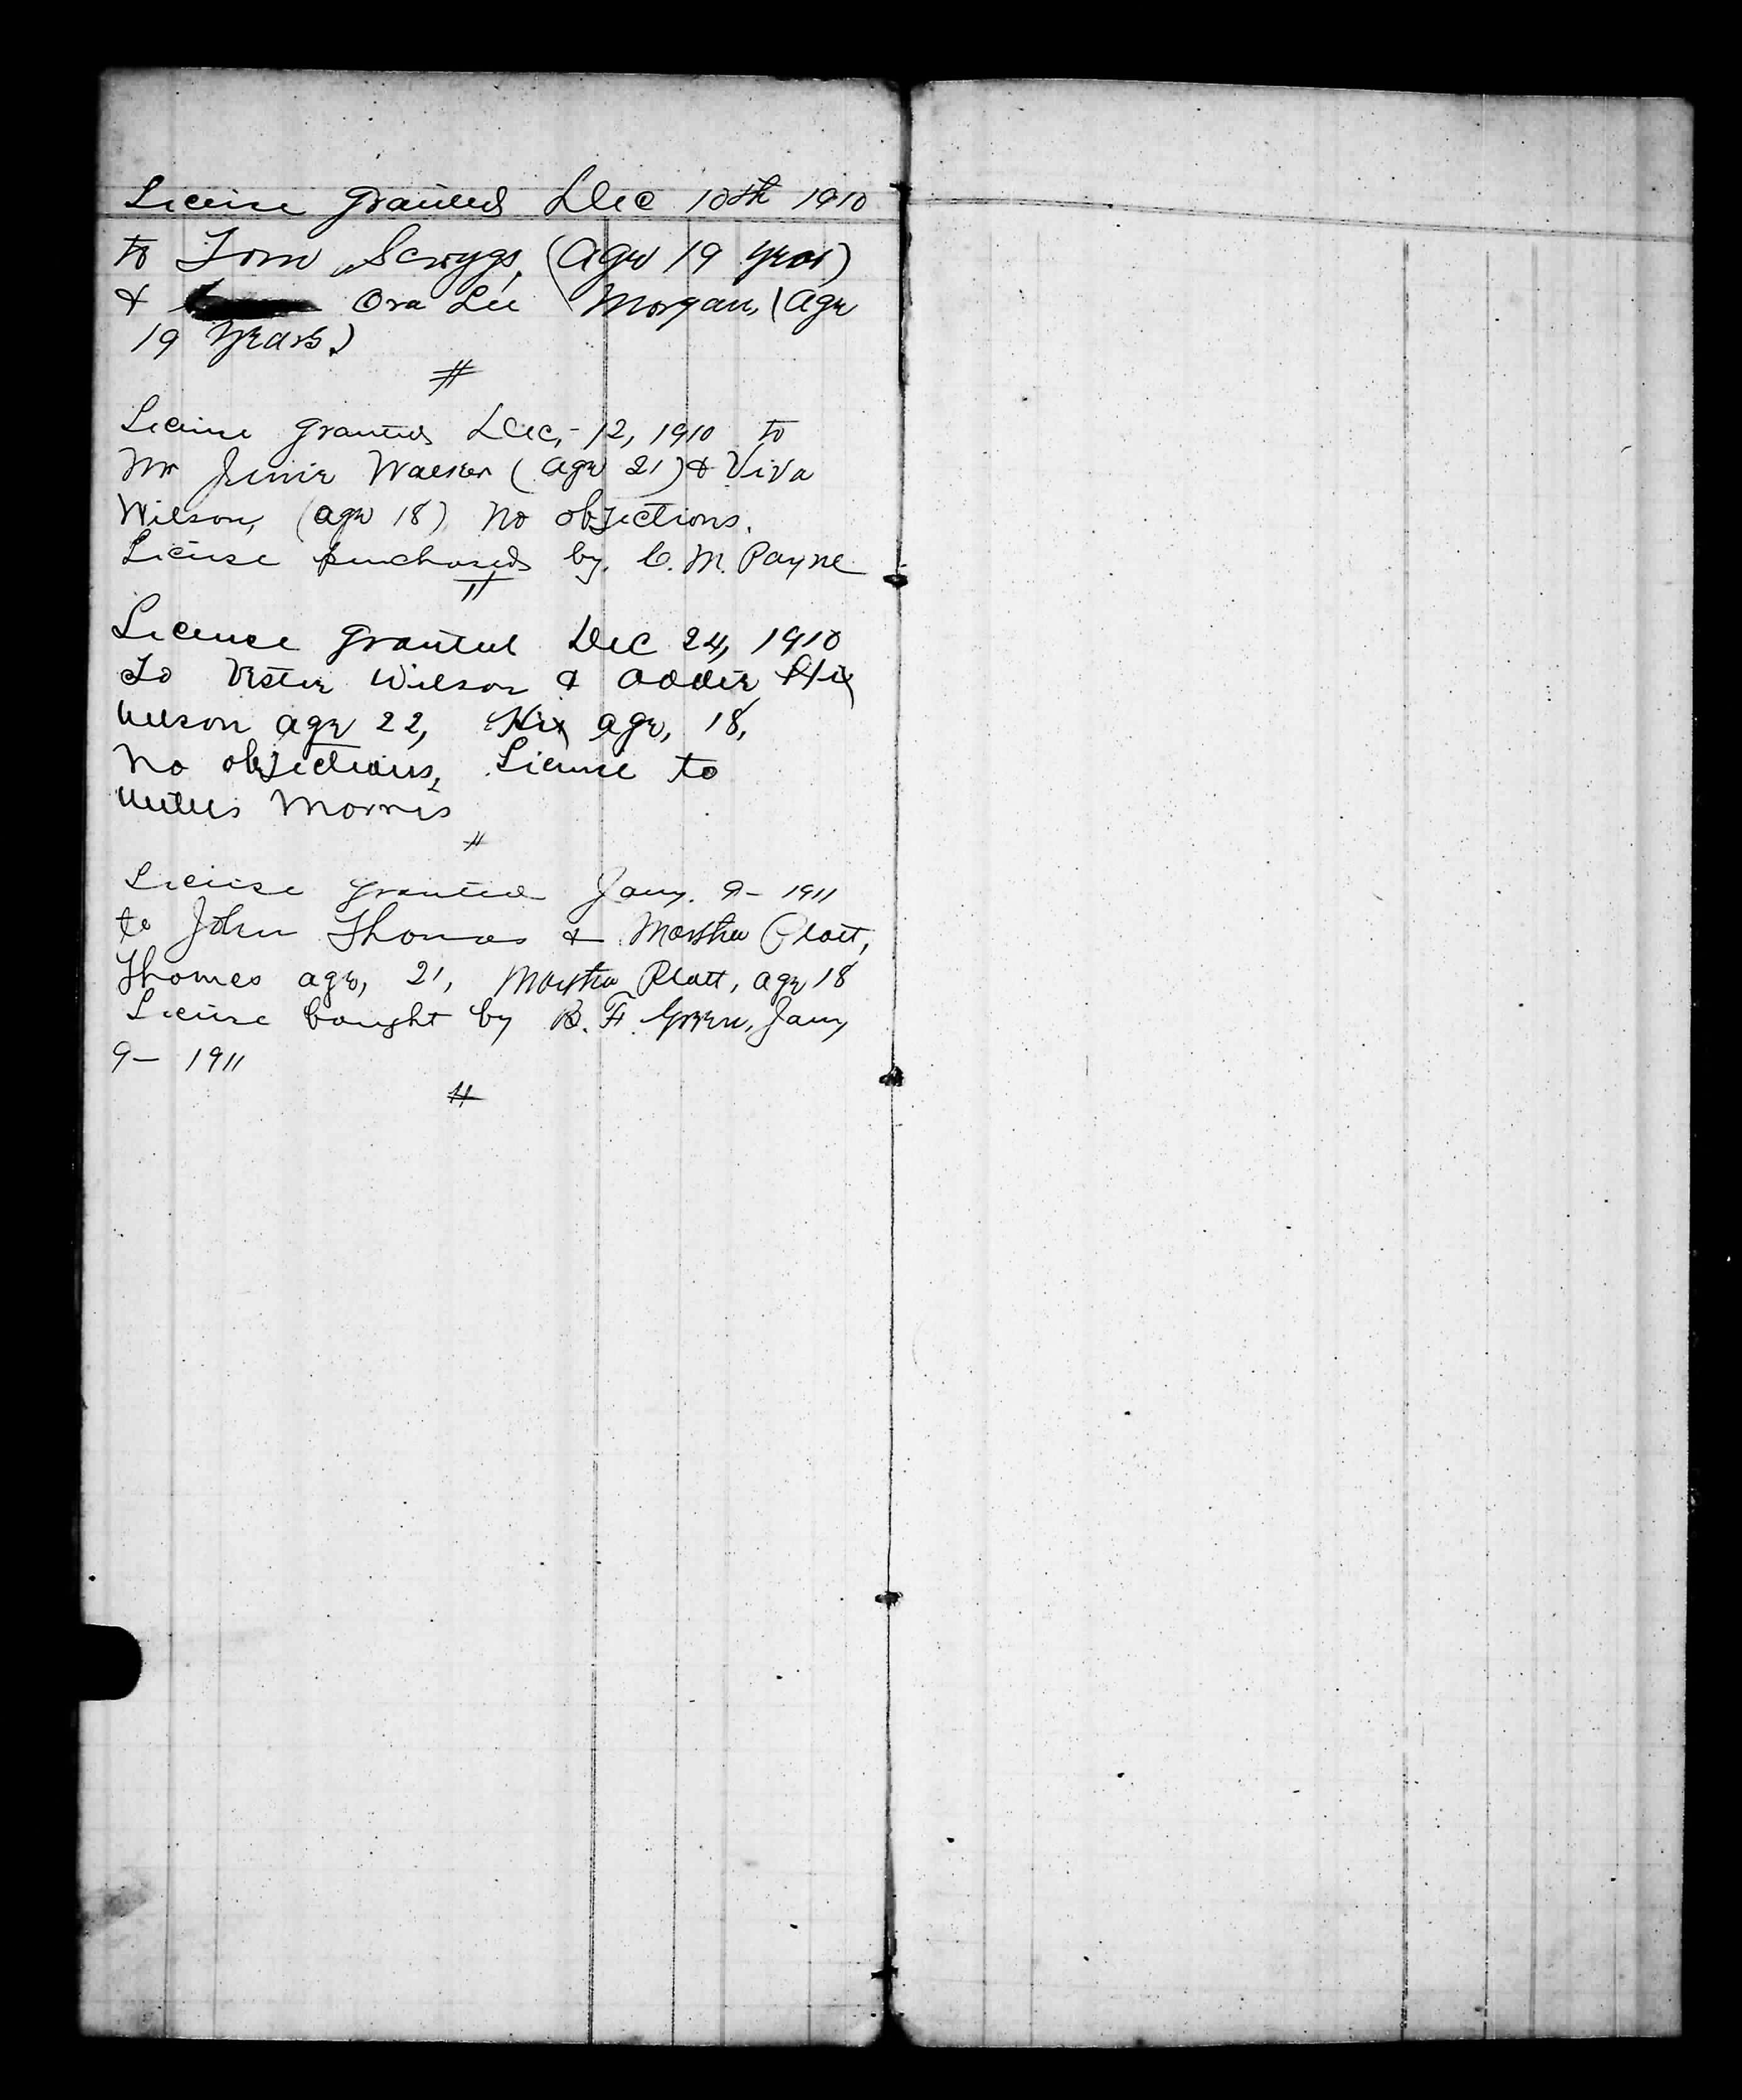 License granted Dec 10th 1910
to Tom Scrygs, (age 19 year)
& Ora Lee Morgan, (age
19 years.)
#
License granted Dec,- 12, 1910 to
Mr Junie Walker (age 21) & Viva
Wilson, (age 18) No objections.
License purchased by. C. M. Payne
License granted Dec 24, 1910
To Vester Wilson & Addie Hix
Wilson age 22, Hix age, 18,
No objections, License to
Morris
#
License granted Jany. 9- 1911
to John Thomas & Martha Platt,
Thomas age, 21, Martha Platt, age 18
License bought by B. F. Green, Jany
9- 1911
#